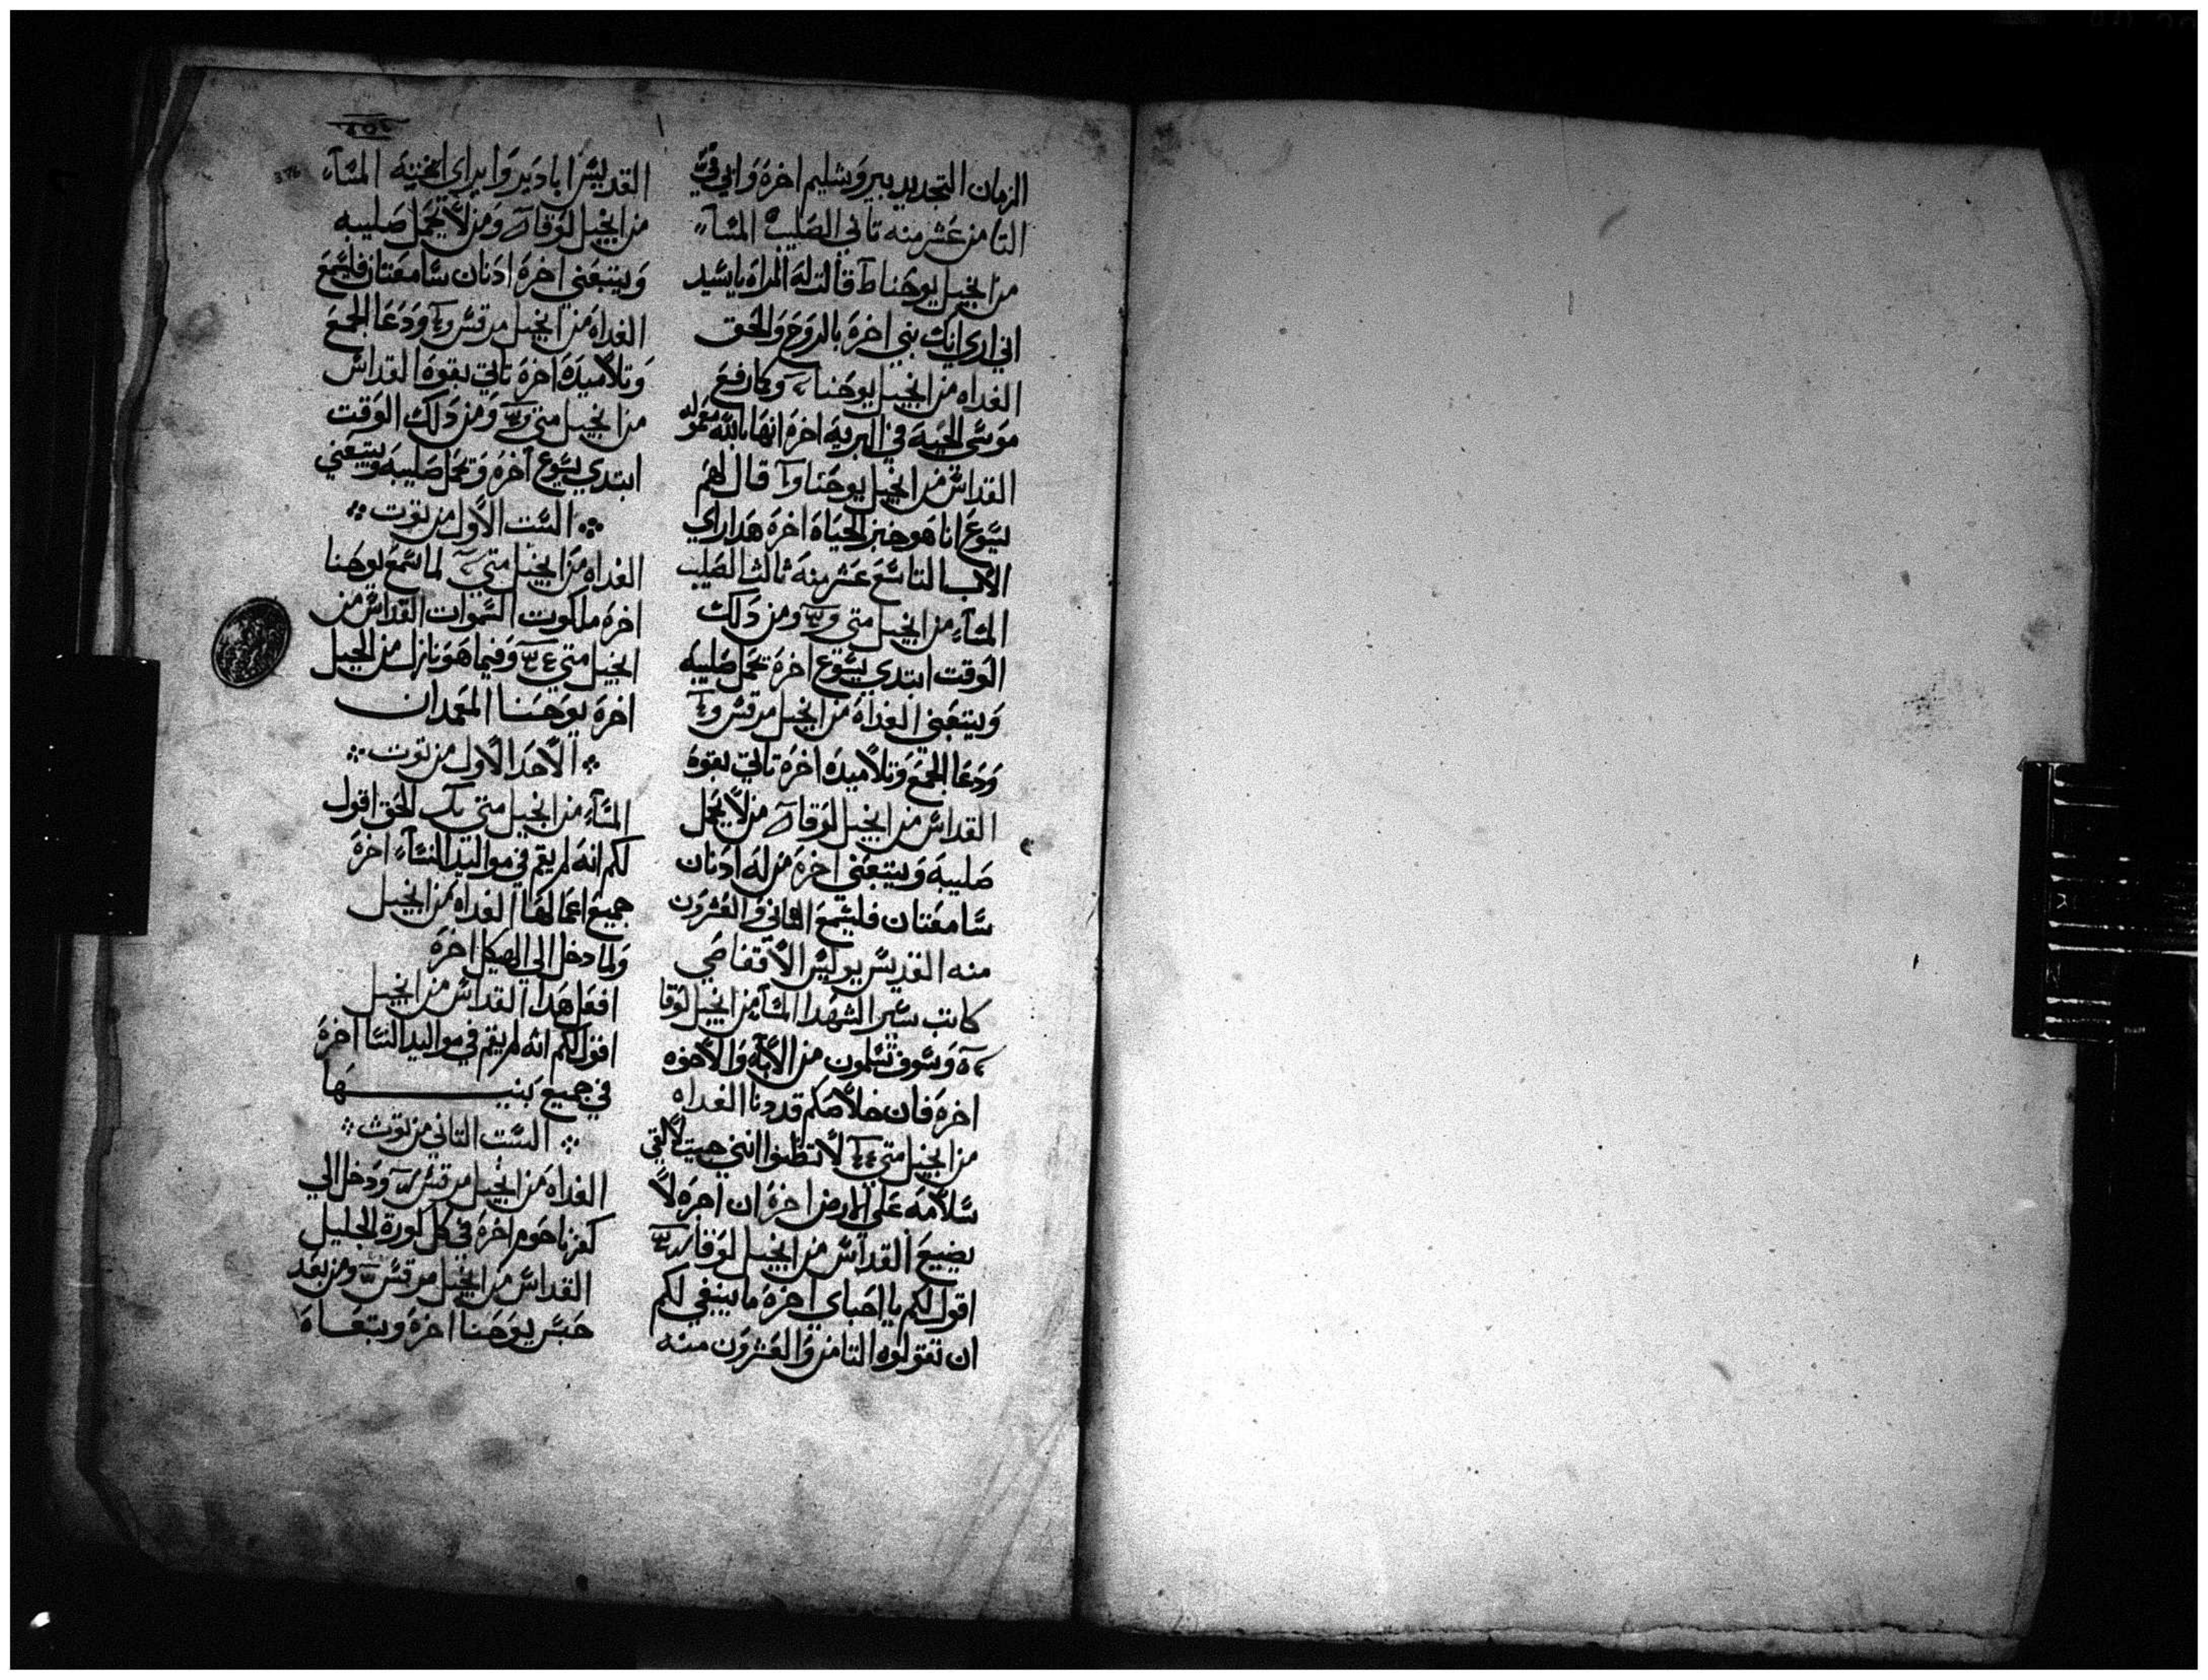 الزمان التجديد بيروشليم اخره واتي في
الثامن عشر منه تاني الصليب المساء
من انجيل يوحنا ط قالت له المراه يا سيد
اني اري انك نبي اخره بالروح والحق
الغداه من انجيل يوحنا وكما رفع
موسي الحيه في البريه اخره انها بالله معموله
القداس من انجيل يوحنا قال لهم
يسوع انا هو خبز الحياه اخره هدا راي
الاب التاسع عشر منه ثالث الصليب
المساء من انجيل متي ومن دلك
الوقت ابتدي يسوع اخره يحمل صليبه
ويتبعني الغداه من انجيل مرقس
ودعا الجمع وتلاميده اخره تاتي بقوه
القداس من انجيل لوقا من لا يحمل
صليبه ويتبعني اخره من له ادنان
سامعتان فليسمع الثاني والعشرون
منه القديس يوليس الاقفاصي
كاتب سير الشهدا المساء من انجيل لوقا
وسوف تسلمون من الابآء والاخوه
اخره فان خلاصكم قد دنا الغداه
من انجيل متي لا تظنوا انني جيت لالقي
سلامه علي الارض اخره ان اجره لا
يضيع القداس من انجيل لوقا
اقول لكم يا احباي اخره ما ينبغي لكم
ان تقولوه الثامن والعشرون منه
القديس ابادير وايراي اخته المساء
من انجيل لوقا ومن لا يحمل صليبه
ويتبعني اخره ادنان سامعتان فليسمع
الغداه من انجيل مرقس ودعا الجمع
وتلاميده اخره تاتي بقوه القداس
من انجيل متي ومن دلك الوقت
ابتدي يسوع اخره ويحمل صليبه ويتبعني
السبت الاول من توت
الغداه من انجيل متي لما سمع يوحنا
اخره ملكوت السموات القداس من
انجيل متي وفيما هو نازل من الجبل
اخره يوحنا المعمدان
الاحد الاول من توت
المساء من انجيل متي الحق اقول
لكم انه لم يقم في مواليد النساء اخره
جميع اعمالها الغداه من انجيل
ولما دخل الي الهيكل اخره
افعل هدا القداس من انجيل
اقول لكم انه لم يقم في مواليد النسا اخره
في جميع بنيها
السبت الثاني من توت
الغداه من انجيل مرقس ودخل الي
كفرناحوم اخره في كل كورة الجليل
القداس من انجيل مرقس ومن بعد
حبس يوحنا اخره وتبعاه